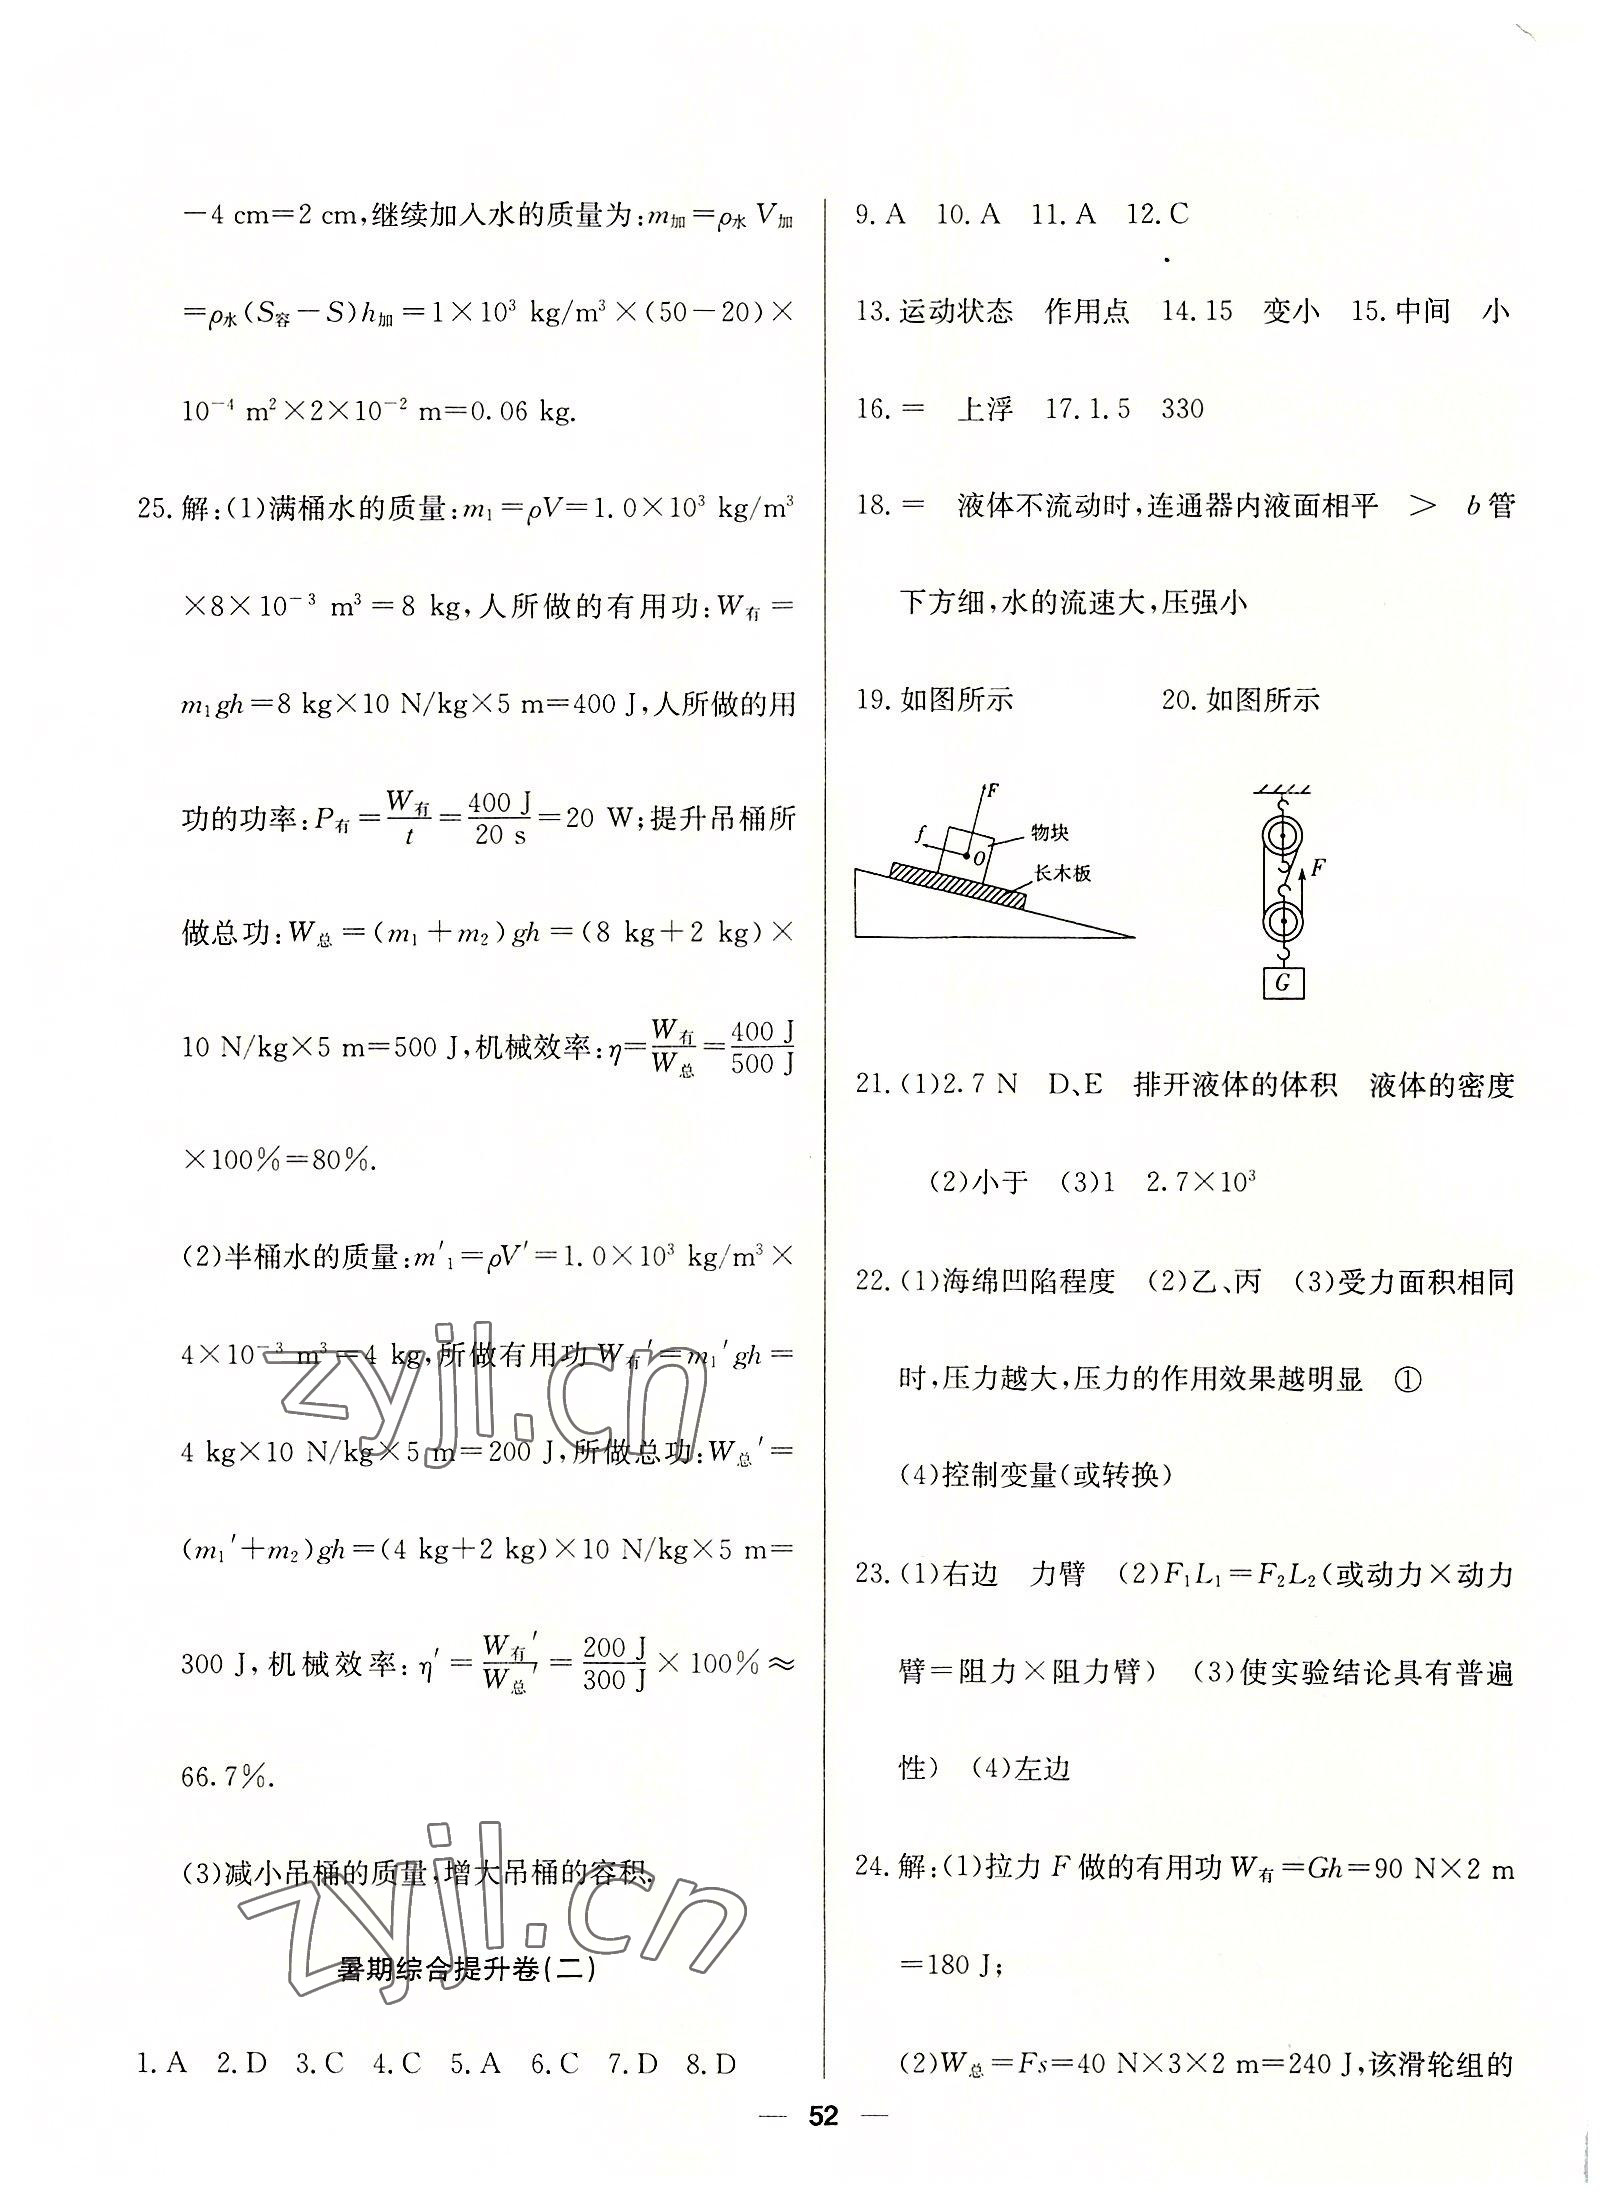 －4 cm＝2 cm,继续加入水的质量为:m加＝ρ水 V加
＝ρ水(S容－S)h加＝1×10³ kg/m³×(50－20)×
10⁻⁴ m²×2×10⁻² m＝0.06 kg.
25. 解:(1)满桶水的质量:m₁＝ρV＝1.0×10³ kg/m³
×8×10⁻³ m³＝8 kg,人所做的有用功:W有＝
m₁gh＝8 kg×10 N/kg×5 m＝400 J,人所做的用
功的功率:P有＝W有/t＝400 J/20 s＝20 W;提升吊桶所
做总功:W总＝(m₁＋m₂)gh＝(8 kg＋2 kg)×
10 N/kg×5 m＝500 J,机械效率:η＝W有/W总＝400 J/500 J
×100%＝80%.
(2)半桶水的质量:m′₁＝ρV′＝1.0×10³ kg/m³×
4×10⁻³ m³＝4 kg,所做有用功W有′＝m₁′gh＝
4 kg×10 N/kg×5 m＝200 J,所做总功:W总′＝
(m₁′＋m₂)gh＝(4 kg＋2 kg)×10 N/kg×5 m＝
300 J,机械效率:η′＝W有′/W总′＝200 J/300 J×100%≈
66.7%.
(3)减小吊桶的质量,增大吊桶的容积.
暑期综合提升卷(二)
1. A 2. D 3. C 4. C 5. A 6. C 7. D 8. D
9. A 10. A 11. A 12. C
13. 运动状态 作用点 14. 15 变小 15. 中间 小
16. ＝ 上浮 17. 1.5 330
18. ＝ 液体不流动时,连通器内液面相平 ＞ b管
下方细,水的流速大,压强小
19. 如图所示 20. 如图所示
F
f
O
物块
长木板
F
G
21. (1)2.7 N D、E 排开液体的体积 液体的密度
(2)小于 (3)1 2.7×10³
22. (1)海绵凹陷程度 (2)乙、丙 (3)受力面积相同
时,压力越大,压力的作用效果越明显 ①
(4)控制变量(或转换)
23. (1)右边 力臂 (2)F₁L₁＝F₂L₂(或动力×动力
臂＝阻力×阻力臂) (3)使实验结论具有普遍
性) (4)左边
24. 解:(1)拉力 F 做的有用功W有＝Gh＝90 N×2 m
＝180 J;
(2)W总＝Fs＝40 N×3×2 m＝240 J,该滑轮组的
— 52 —
zyjl.cn
zyjl.cn